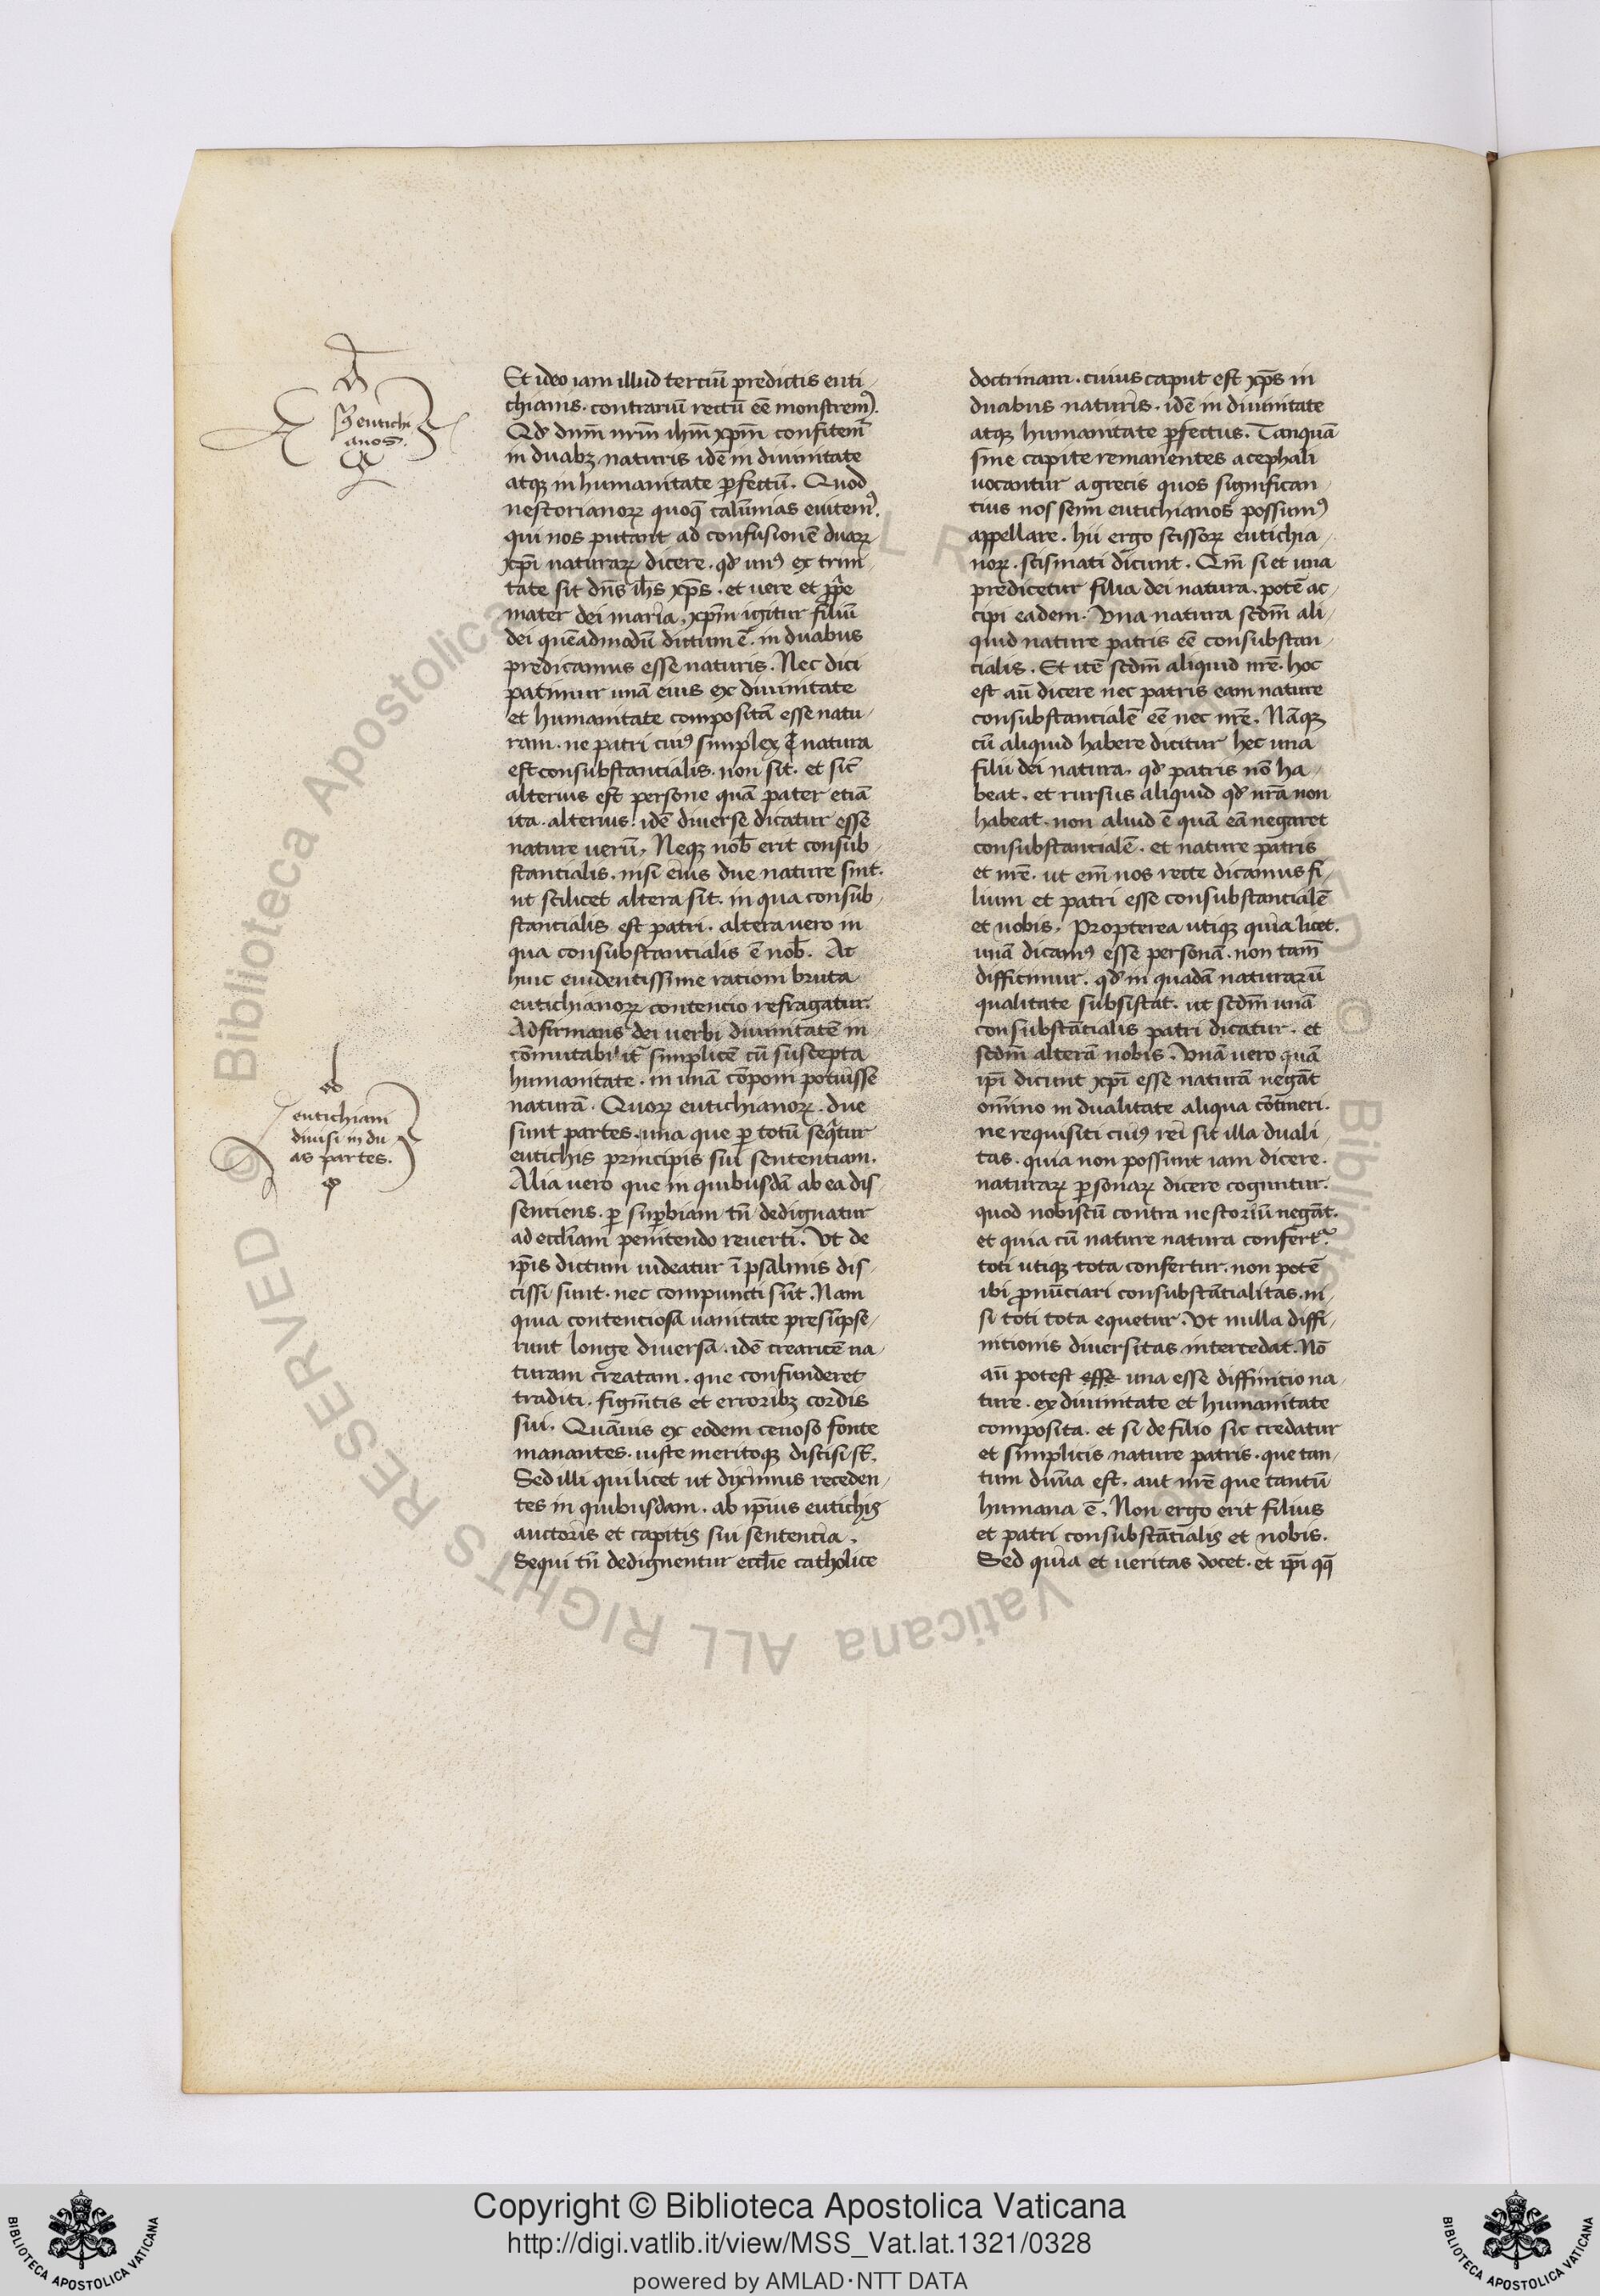 Et ideo iam illud terciū predictis euti
chianis. contrariū rectū eē monstremꝰ.
Qd dnm̄ nrm̄ ihm̄ xpm̄ confitemr̄
in duabꝫ naturis idē in diuinitate
atqꝫ in humanitate pfectū. Quod
nestorianoꝝ quoqꝫ calūmias euitemꝰ.
qui nos putant ad confusionē duaꝝ
xpi naturaꝝ dicere. qd unꝰ ex trini
tate sit dns̄ ihs̄ xps̄. et uere et ppe
mater dei maria. xpm̄ igitur filiū
dei quēadmodū dictum ē. in duabus
predicamus esse naturis. Nec dici
patimur unā eius ex diuinitate
et humanitate compositā esse natu
ram. ne patri cuiꝰ simplex ē natura
est consubstancialis. non sit. et sic
alterius est persone quā pater etiā
ita. alterius. idē diuerse dicatur esse
nature uerū. Neqꝫ nob̄ erit consub
stancialis. nisi eius due nature sint.
ut scilicet altera sit. in qua consub
stancialis est patri. altera uero in
qua consubstancialis ē nob̄. At
huic euidentissime rationi bruta
eutichianoꝝ contencio refragatur.
Adfirmans dei uerbi diuinitatē in
cōmutabilit̄ simplicē cū suscepta
humanitate. in unā cōponi potuisse
naturā. Quoꝝ eutichianoꝝ. due
sunt partes. una que p totū seqtur
eutichis principis sui sententiam.
Alia uero que in quibusdā ab ea dis
senciens. p supbiam tn̄ dedignatur
ad eccliam penitendo reuerti. Vt de
ipis dictum uideatur ī psalmis dis
cissi sunt. nec compuncti sūt. Nam
quia contenciosa uanitate presūpse
runt longe diuersa. idē creatricē na
turam creatam. que confunderet
traditi. figmt̄is et erroribꝫ cordis
sui. Quāuis ex eodem cenoso fonte
manantes. iuste meritoqꝫ discisi st̄.
Sed illi qui licet ut diximus receden
tes in quibusdam. ab ipius eutichis
auctoris et capitis sui sentencia.
Sequi tn̄ dedignentur eccl̄ie catholice
doctrinam. cuius caput est xps̄ in
duabus naturis. idē in diuinitate
atqꝫ humanitate pfectus. Tanquā
sine capite remanentes acephali
uocantur a grecis quos significan
tius nos semi eutichianos possumꝰ
appellare. hii ergo scissoꝝ eutichia
noꝝ. scismati dicunt. Qm̄ si et una
predicetur filii dei natura. potē ac
cipi eadem. Vna natura scdm̄ ali
quid nature patris eē consubstan
cialis. Et itē scdm̄ aliquid nrē. hoc
est aū dicere nec patris eam nature
consubstancialē eē nec nrē. Nāqꝫ
cū aliquid habere dicitur hec una
filii dei natura. qd patris nō ha
beat. et rursus aliquid qd nrā non
habeat. non aliud ē quā eā negaret
consubstancialē. et nature patris
et nrē. ut em̄ nos recte dicamus fi
lium et patri esse consubstancialē
et nobis. Propterea utiqꝫ quia licet.
unā dicamꝰ esse personā. non tam̄
difficimur. qd in quadā naturarū
qualitate subsistat. ut scdm̄ unā
consubstācialis patri dicatur. et
scdm̄ alterā nobis. Vnā uero quā
ipi dicunt xpi esse naturā negāt
omīno in dualitate aliqua cōtineri.
ne requisiti cuiꝰ rei sit illa duali
tas. quia non possunt iam dicere.
naturaꝝ psonaꝝ dicere coguntur.
quod nobiscū contra nestoriū negāt.
et quia cū nature natura confert̄.
toti utiqꝫ tota confertur. non potē
ibi pnūciari consubstācialitas. ni
si toti tota equetur. Vt nulla diffi
nitionis diuersitas intercedat. Nō
aū potest esse una esse diffinicio na
ture. ex diuinitate et humanitate
composita. et si de filio sic credatur
et simplicis nature patris. que tan
tum diuīa est. aut nrē que tantū
humana ē. Non ergo erit filius
et patri consubstācialis et nobis.
Sed quia et ueritas docet. et ipi qqꝫ
eutichi
anos.
eutichiani
diuisi in du
as partes.
Copyright © Biblioteca Apostolica Vaticana
http://digi.vatlib.it/view/MSS_Vat.lat.1321/0328
powered by AMLAD·NTT DATA
BIBLIOTECA APOSTOLICA VATICANA
BIBLIOTECA APOSTOLICA VATICANA
© Biblioteca Apostolica Vaticana ALL RIGHTS RESERVED